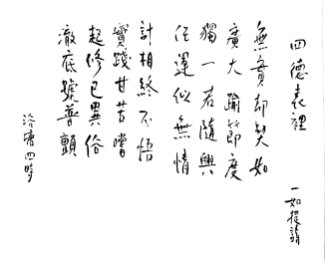 四德表裡
一如提講
無貪却契如
廣大踰節度
獨一若隨興
任運似無情
計相終不悟
實踐甘苦嚐
起修已異俗
澈底號普顛